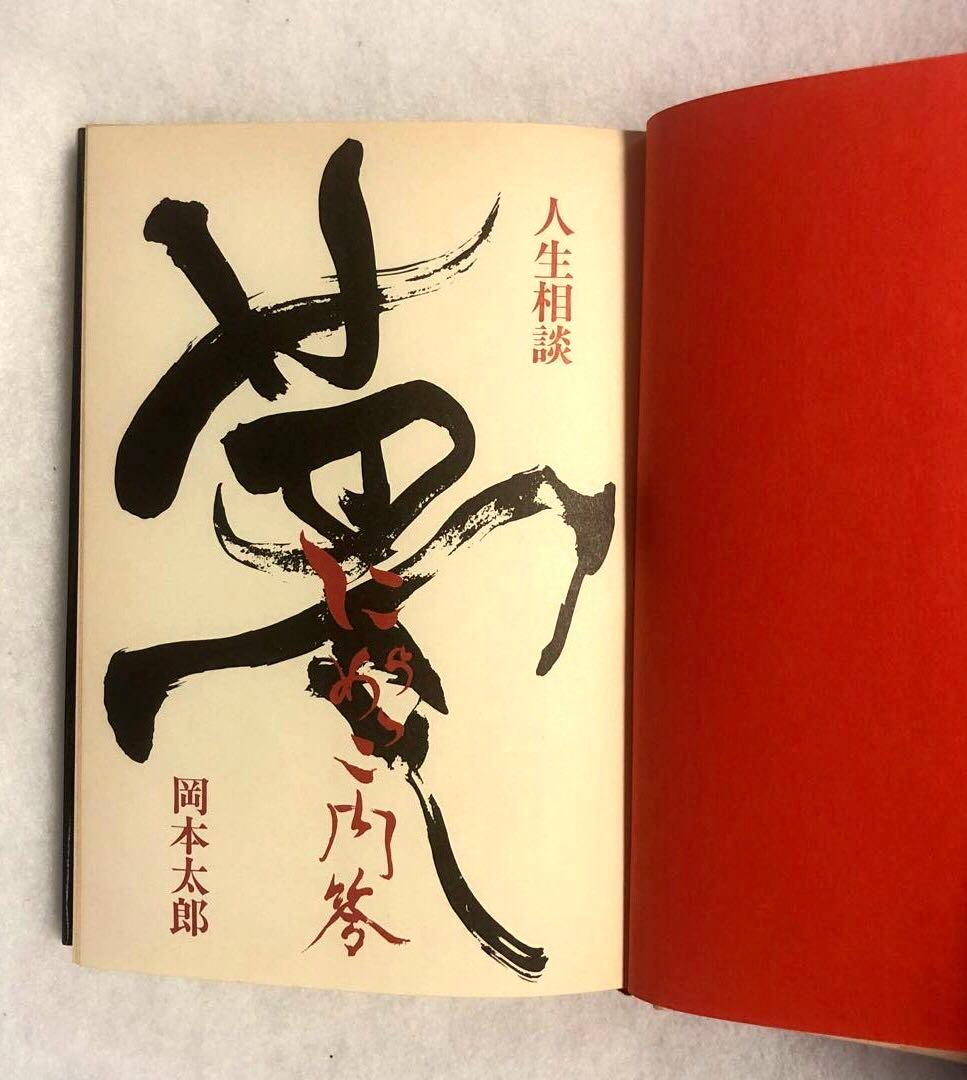 人生相談
夢
にらめっこ問答
岡本太郎